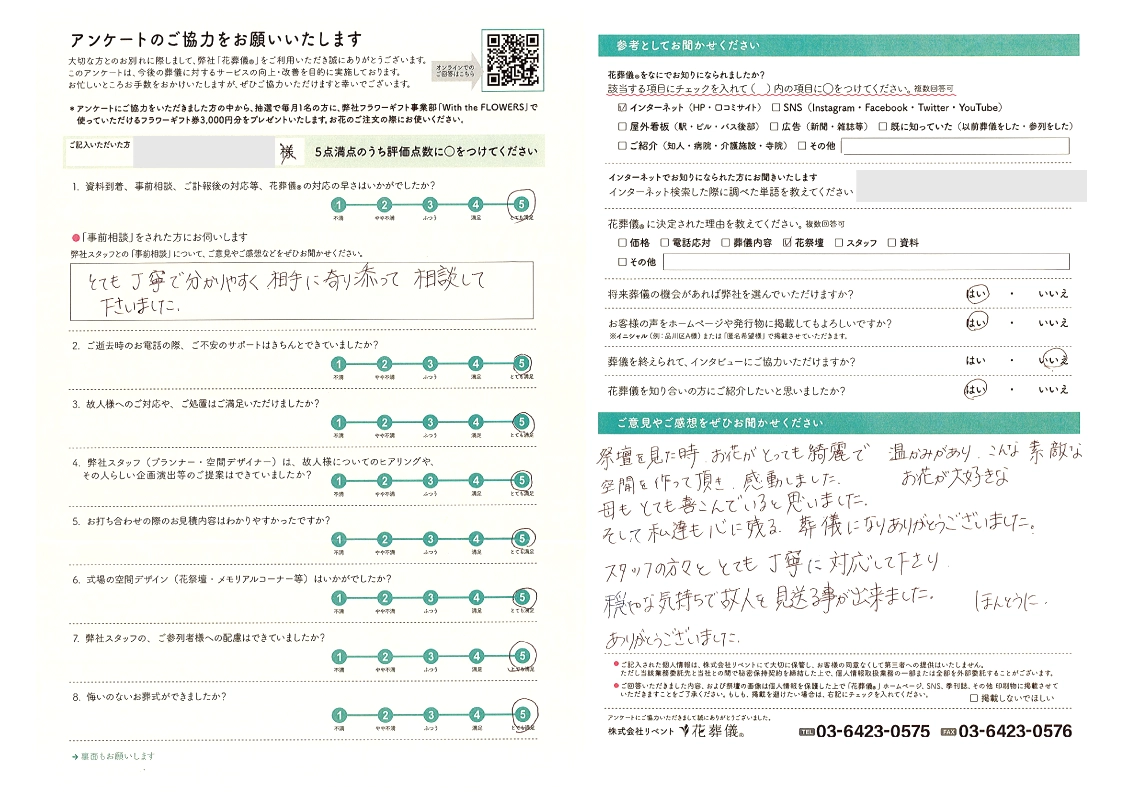 アンケートのご協力をお願いいたします
大切な方とのお別れに際しまして、弊社「花葬儀®」をご利用いただき誠にありがとうございます。
このアンケートは、今後の葬儀に対するサービスの向上・改善を目的に実施しております。
お忙しいところお手数をおかけいたしますが、ぜひご協力いただけますと幸いでございます。
オンラインでの
ご回答はこちら
*アンケートにご協力をいただきました方の中から、抽選で毎月1名の方に、弊社フラワーギフト事業部「With the FLOWERS」で
使っていただけるフラワーギフト券3,000円分をプレゼントいたします。お花のご注文の際にお使いください。
ご記入いただいた方 様 5点満点のうち評価点数に○をつけてください
1. 資料到着、事前相談、ご訃報後の対応等、花葬儀®の対応の早さはいかがでしたか?
1 2 3 4 5
不満 やや不満 ふつう 満足 とても満足
●「事前相談」をされた方にお伺いします
弊社スタッフとの「事前相談」について、ご意見やご感想などをぜひお聞かせください。
とても丁寧で分かりやすく 相手に寄り添って 相談して
下さいました。
2. ご逝去時のお電話の際、ご不安のサポートはきちんとできていましたか?
1 2 3 4 5
不満 やや不満 ふつう 満足 とても満足
3. 故人様へのご対応や、ご処置はご満足いただけましたか?
1 2 3 4 5
不満 やや不満 ふつう 満足 とても満足
4. 弊社スタッフ(プランナー・空間デザイナー)は、故人様についてのヒアリングや、
その人らしい企画演出等のご提案はできていましたか?
1 2 3 4 5
不満 やや不満 ふつう 満足 とても満足
5. お打ち合わせの際のお見積内容はわかりやすかったですか?
1 2 3 4 5
不満 やや不満 ふつう 満足 とても満足
6. 式場の空間デザイン(花祭壇・メモリアルコーナー等)はいかがでしたか?
1 2 3 4 5
不満 やや不満 ふつう 満足 とても満足
7. 弊社スタッフの、ご参列者様への配慮はできていましたか?
1 2 3 4 5
不満 やや不満 ふつう 満足 とても満足
8. 悔いのないお葬式ができましたか?
1 2 3 4 5
不満 やや不満 ふつう 満足 とても満足
→裏面もお願いします
参考としてお聞かせください
花葬儀®をなにでお知りになられましたか?
該当する項目にチェックを入れて( )内の項目に○をつけてください。複数回答可
☑インターネット(HP・口コミサイト) □SNS(Instagram・Facebook・Twitter・YouTube)
□屋外看板(駅・ビル・バス後部) □広告(新聞・雑誌等) □既に知っていた(以前葬儀をした・参列をした)
□ご紹介(知人・病院・介護施設・寺院) □その他
インターネットでお知りになられた方にお聞きいたします
インターネット検索した際に調べた単語を教えてください
花葬儀®に決定された理由を教えてください。複数回答可
□価格 □電話応対 □葬儀内容 ☑花祭壇 □スタッフ □資料
□その他
将来葬儀の機会があれば弊社を選んでいただけますか? はい ・ いいえ
お客様の声をホームページや発行物に掲載してもよろしいですか? はい ・ いいえ
※イニシャル(例:品川区A様)または「匿名希望様」で掲載させていただきます。
葬儀を終えられて、インタビューにご協力いただけますか? はい ・ いいえ
花葬儀を知り合いの方にご紹介したいと思いましたか? はい ・ いいえ
ご意見やご感想をぜひお聞かせください
祭壇を見た時、お花がとっても綺麗で 温かみがあり、こんな 素敵な
空間を作って頂き、感動しました。 お花が大好きな
母も とても喜こんでいると思いました。
そして私達も心に残る、葬儀になりありがとうございました。
スタッフの方々と とても 丁寧に 対応して下さり
穏やかな気持ちで故人を見送る事が出来ました。 ほんとうに、
ありがとうございました。
●ご記入された個人情報は、株式会社リベントにて大切に保管し、お客様の同意なくして第三者への提供はいたしません。
ただし当該業務委託先と当社との間で秘密保持契約を締結した上で、個人情報取扱業務の一部または全部を外部委託することがございます。
●ご回答いただきました内容、および祭壇の画像は個人情報を保護した上で「花葬儀®」ホームページ、SNS、季刊誌、その他 印刷物に掲載させて
いただきますことをご了承ください。もしも、掲載を避けたい場合は、右記にチェックを入れてください。
□掲載しないでほしい
アンケートにご協力いただきまして誠にありがとうございました。
株式会社リベント 花葬儀® TEL 03-6423-0575 FAX 03-6423-0576